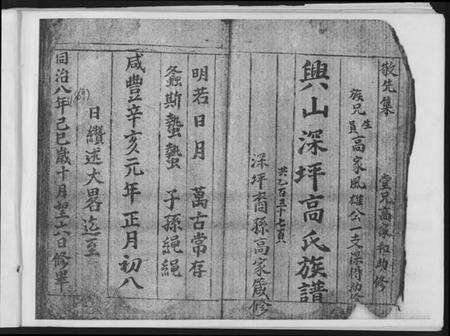 敬先集
堂兄高家和助修
族兄生員高家風雄公一支深待助修
興山深坪高氏族譜
共乙百三十七頁
深坪裔孫高家箴修
明若日月 萬古常存
螽斯蟄蟄 子孫繩繩
咸豐辛亥元年正月初八
日續述大畧迄至
同治八年己巳歲十月初二六日修畢